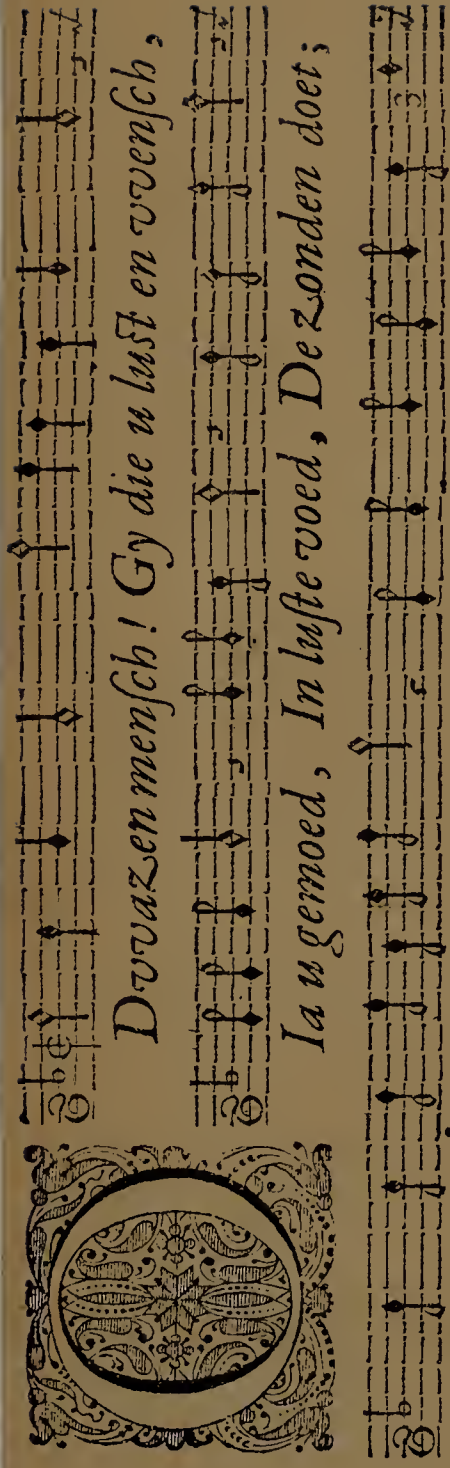 O Dvvazen mensch! Gy die u lust en vvensch,
Ia u gemoed, In luste voed, De zonden doet;